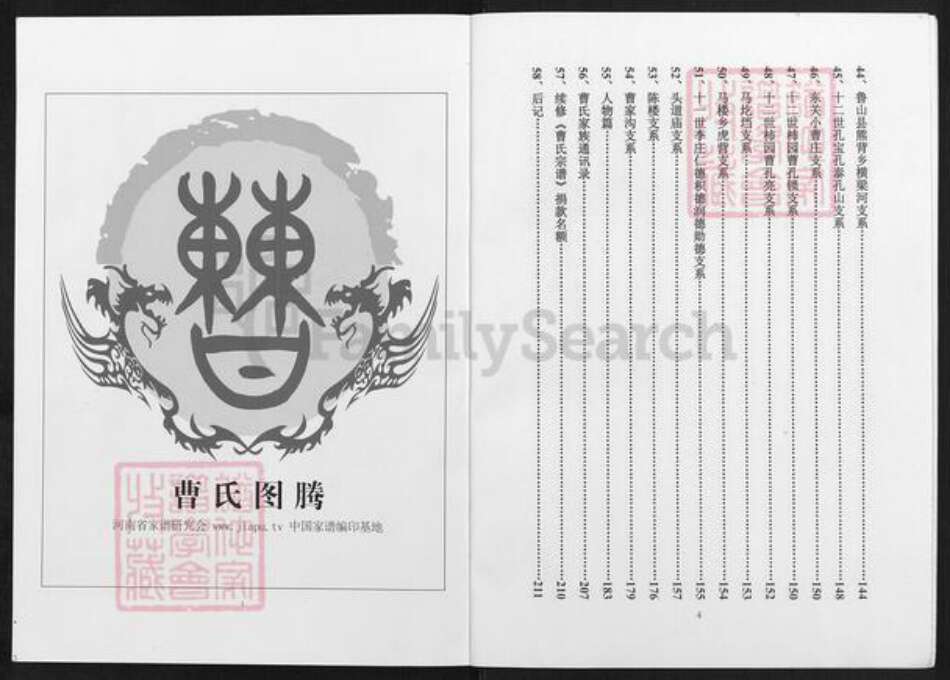 曹氏图腾
河南省家谱研究会 www.jiapu.tv 中国家谱编印基地
44、鲁山县熊背乡横梁河支系 144
45、十二世孔宝孔泰孔山支系 148
46、东关小曹庄支系 150
47、十二世柿园曹孔锁支系 150
48、十二世柿园曹孔亮支系 152
49、马圪垱支系 153
50、马楼乡虎营支系 154
51、十一世李庄仁德积德润德勋德支系 155
52、头道庙支系 157
53、陈楼支系 176
54、曹家沟支系 179
55、人物篇 183
56、曹氏家族通讯录 207
57、续修《曹氏宗谱》捐款名额 210
58、后记 211
4
FamilySearch